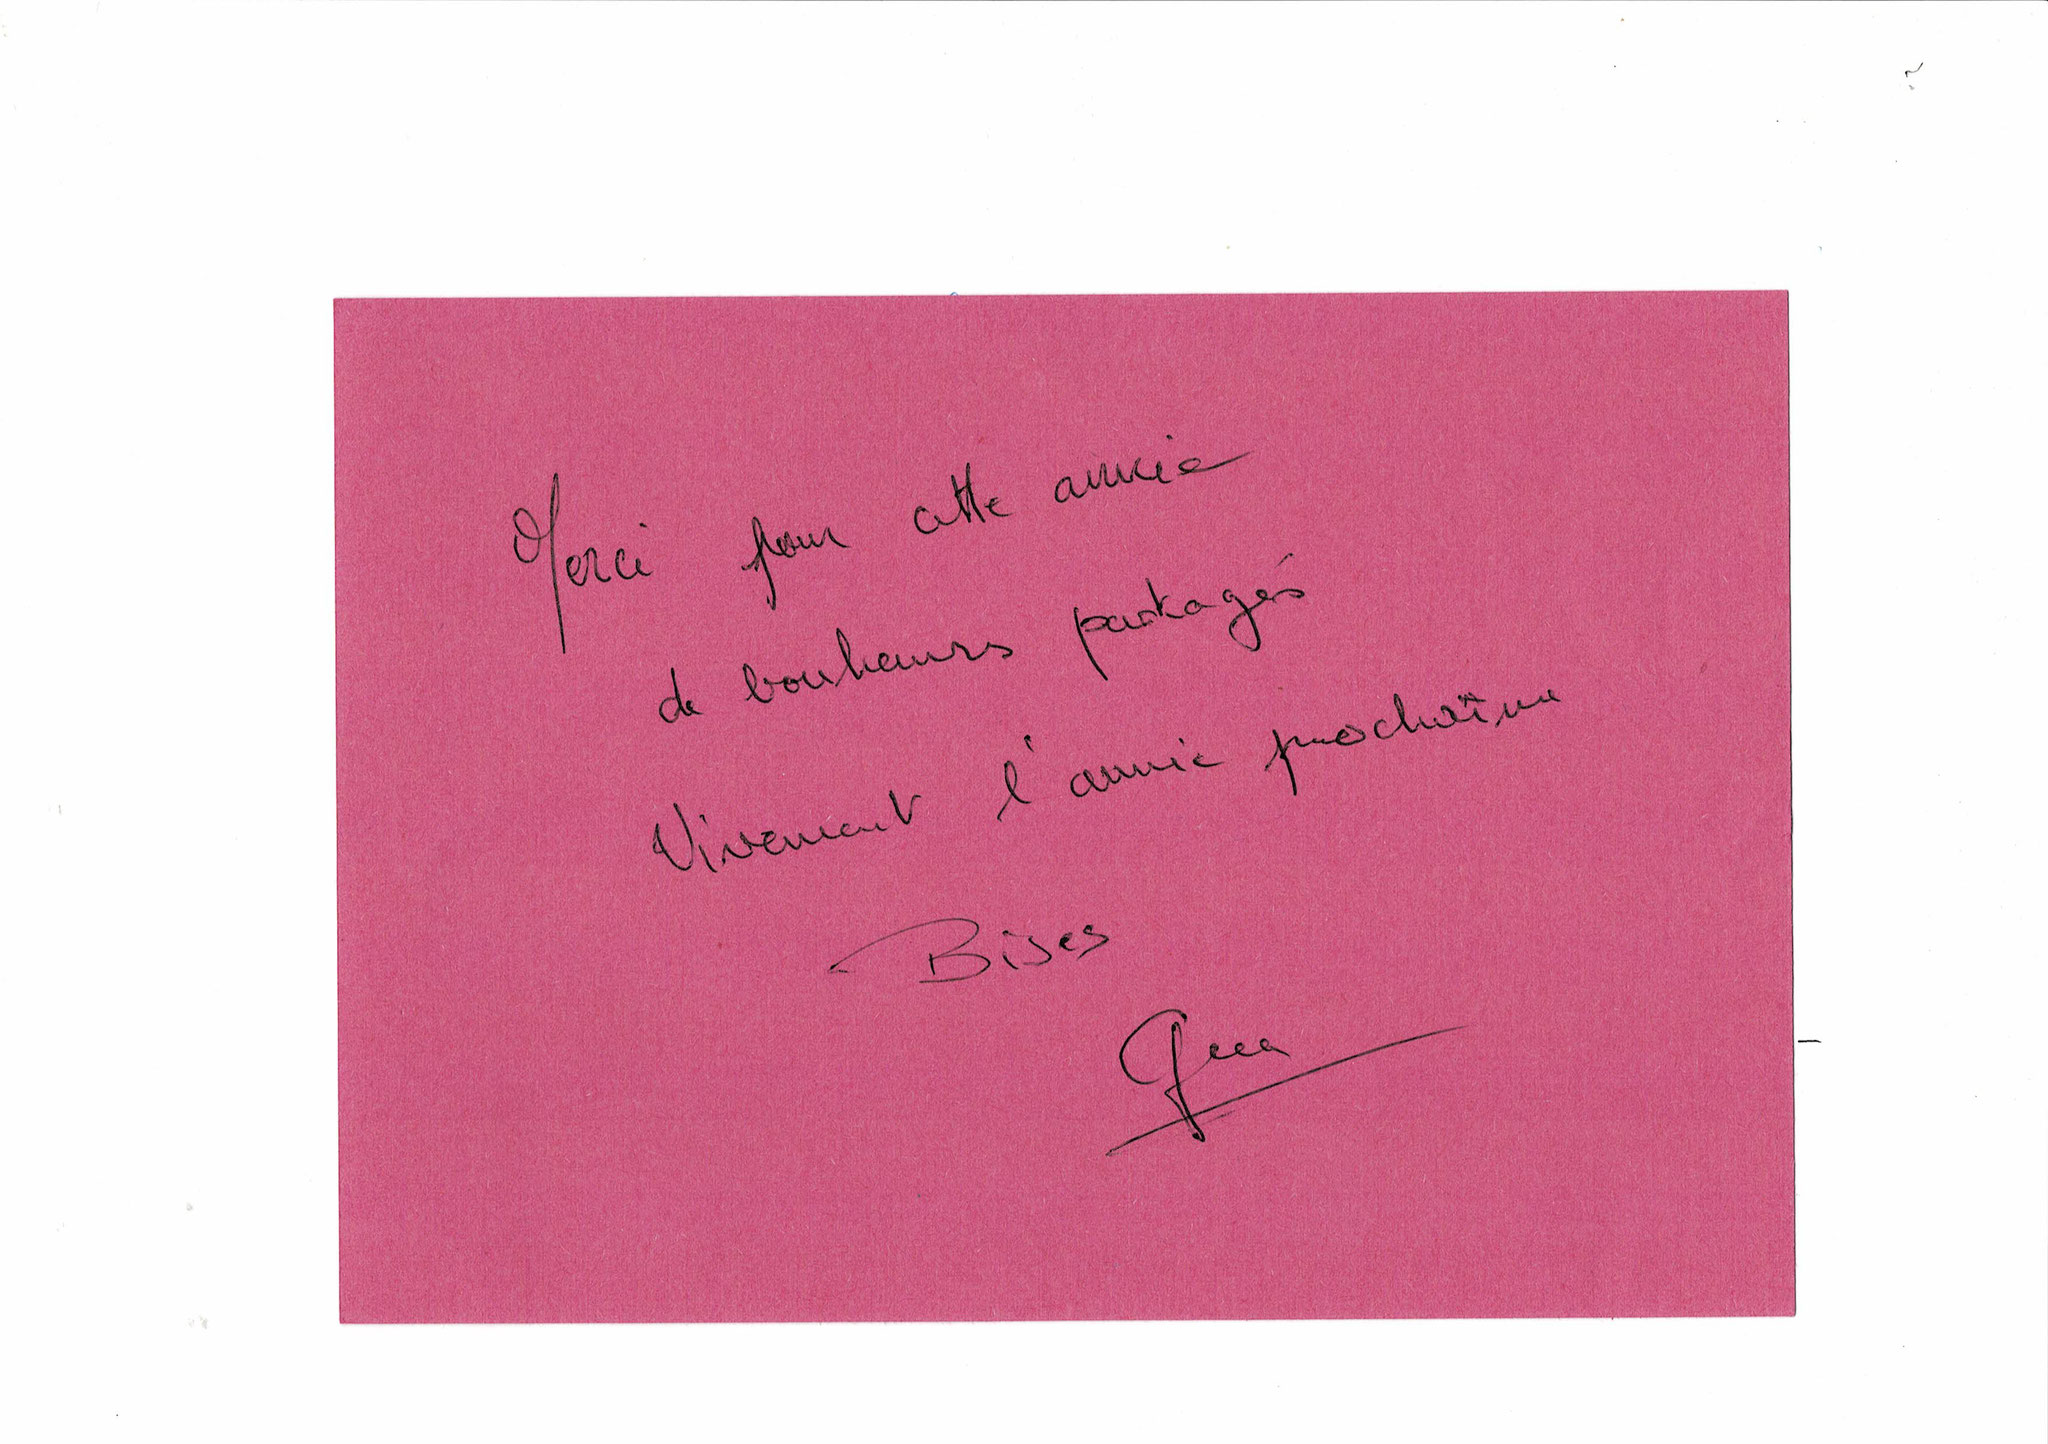 Merci pour cette année
de bonheurs partagés
Vivement l'année prochaîne
Bises